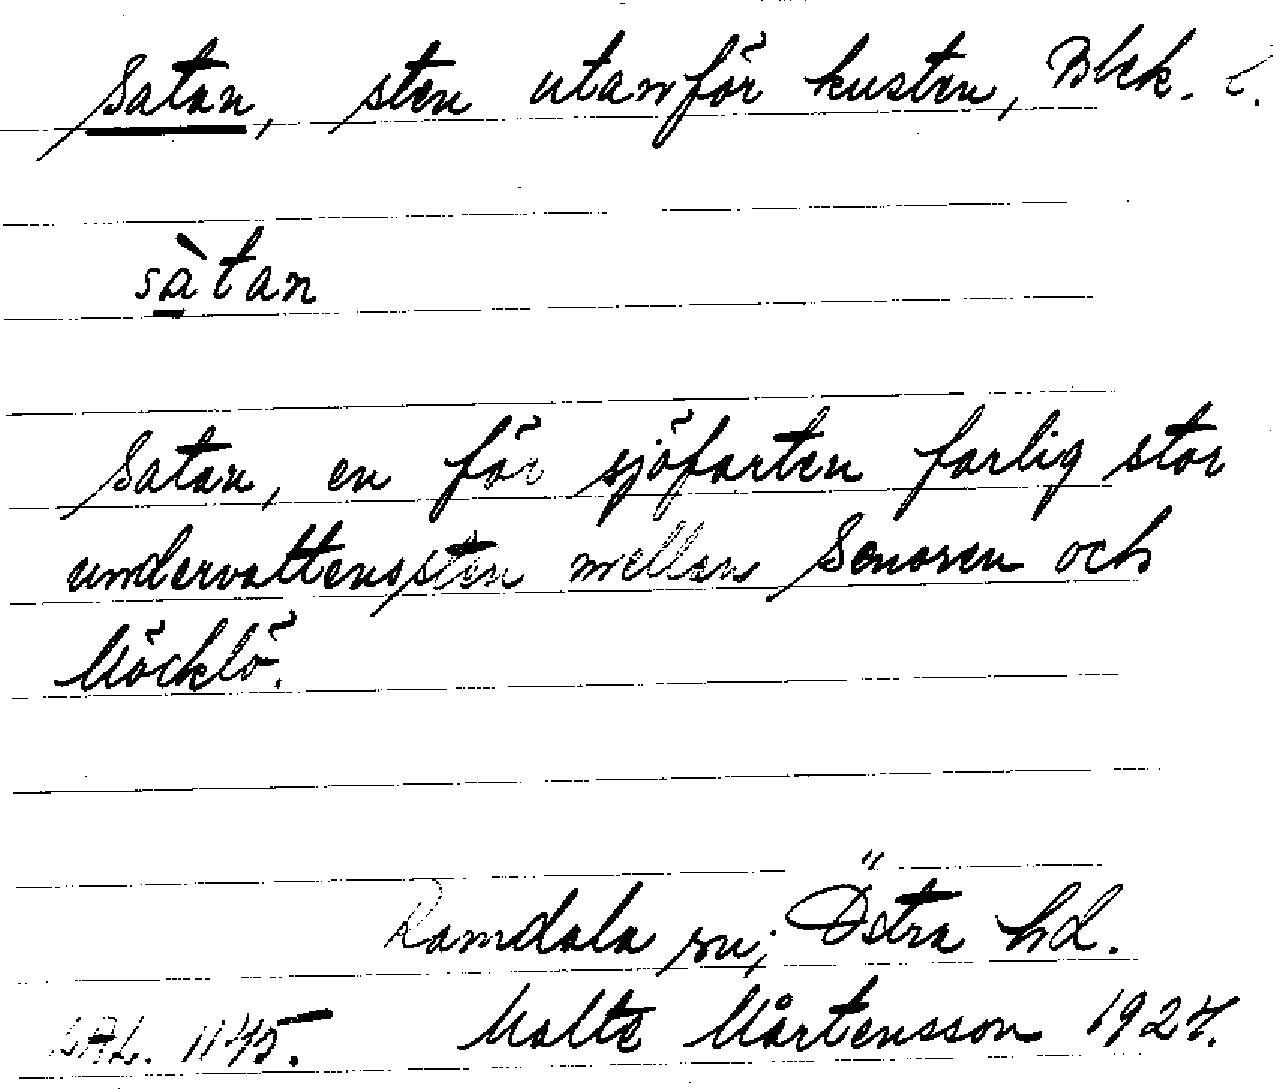 Satan, sten utanför kusten, Blek. l.
sàtan
Satan, en för sjöfarten farlig stor
undervattenssten mellan Senoren och
Möcklö.
Ramdala sn; Östra hd.
LAL. 1145. Malte Mårtensson 1927.